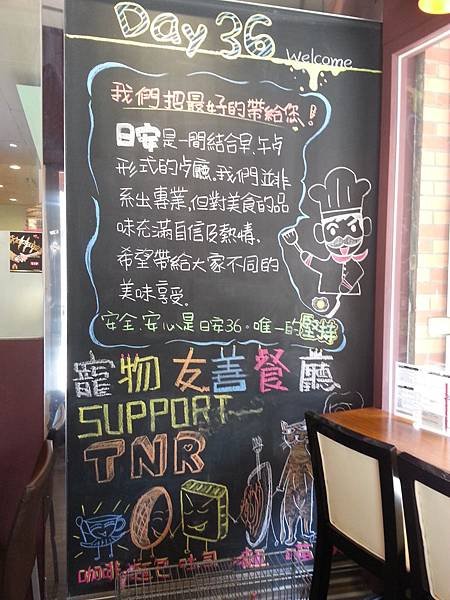 Day 36 Welcome
我們把最好的帶給您！
日安是一間結合早.午卢
形式的卢廳.我們並非
系出專業,但對美食的品
味充滿自信及熱情.
希望帶給大家不同的
美味享受.
安全.安心是日安36。唯一的堅持
寵物友善餐廳
SUPPORT
TNR
咖啡